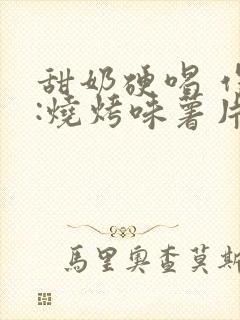 甜奶硬唱
:燒烤味薯片
馬里奧查莫斯